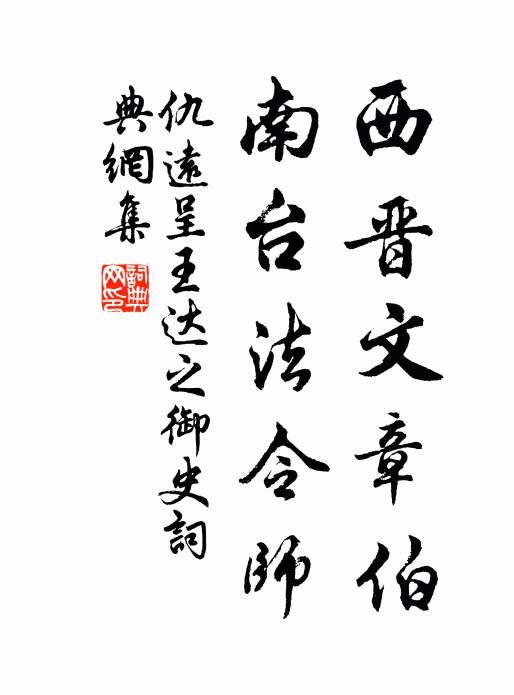 西晋文章伯
南台法令師
仇遠呈王达之御史詞
典網集
詞典網印